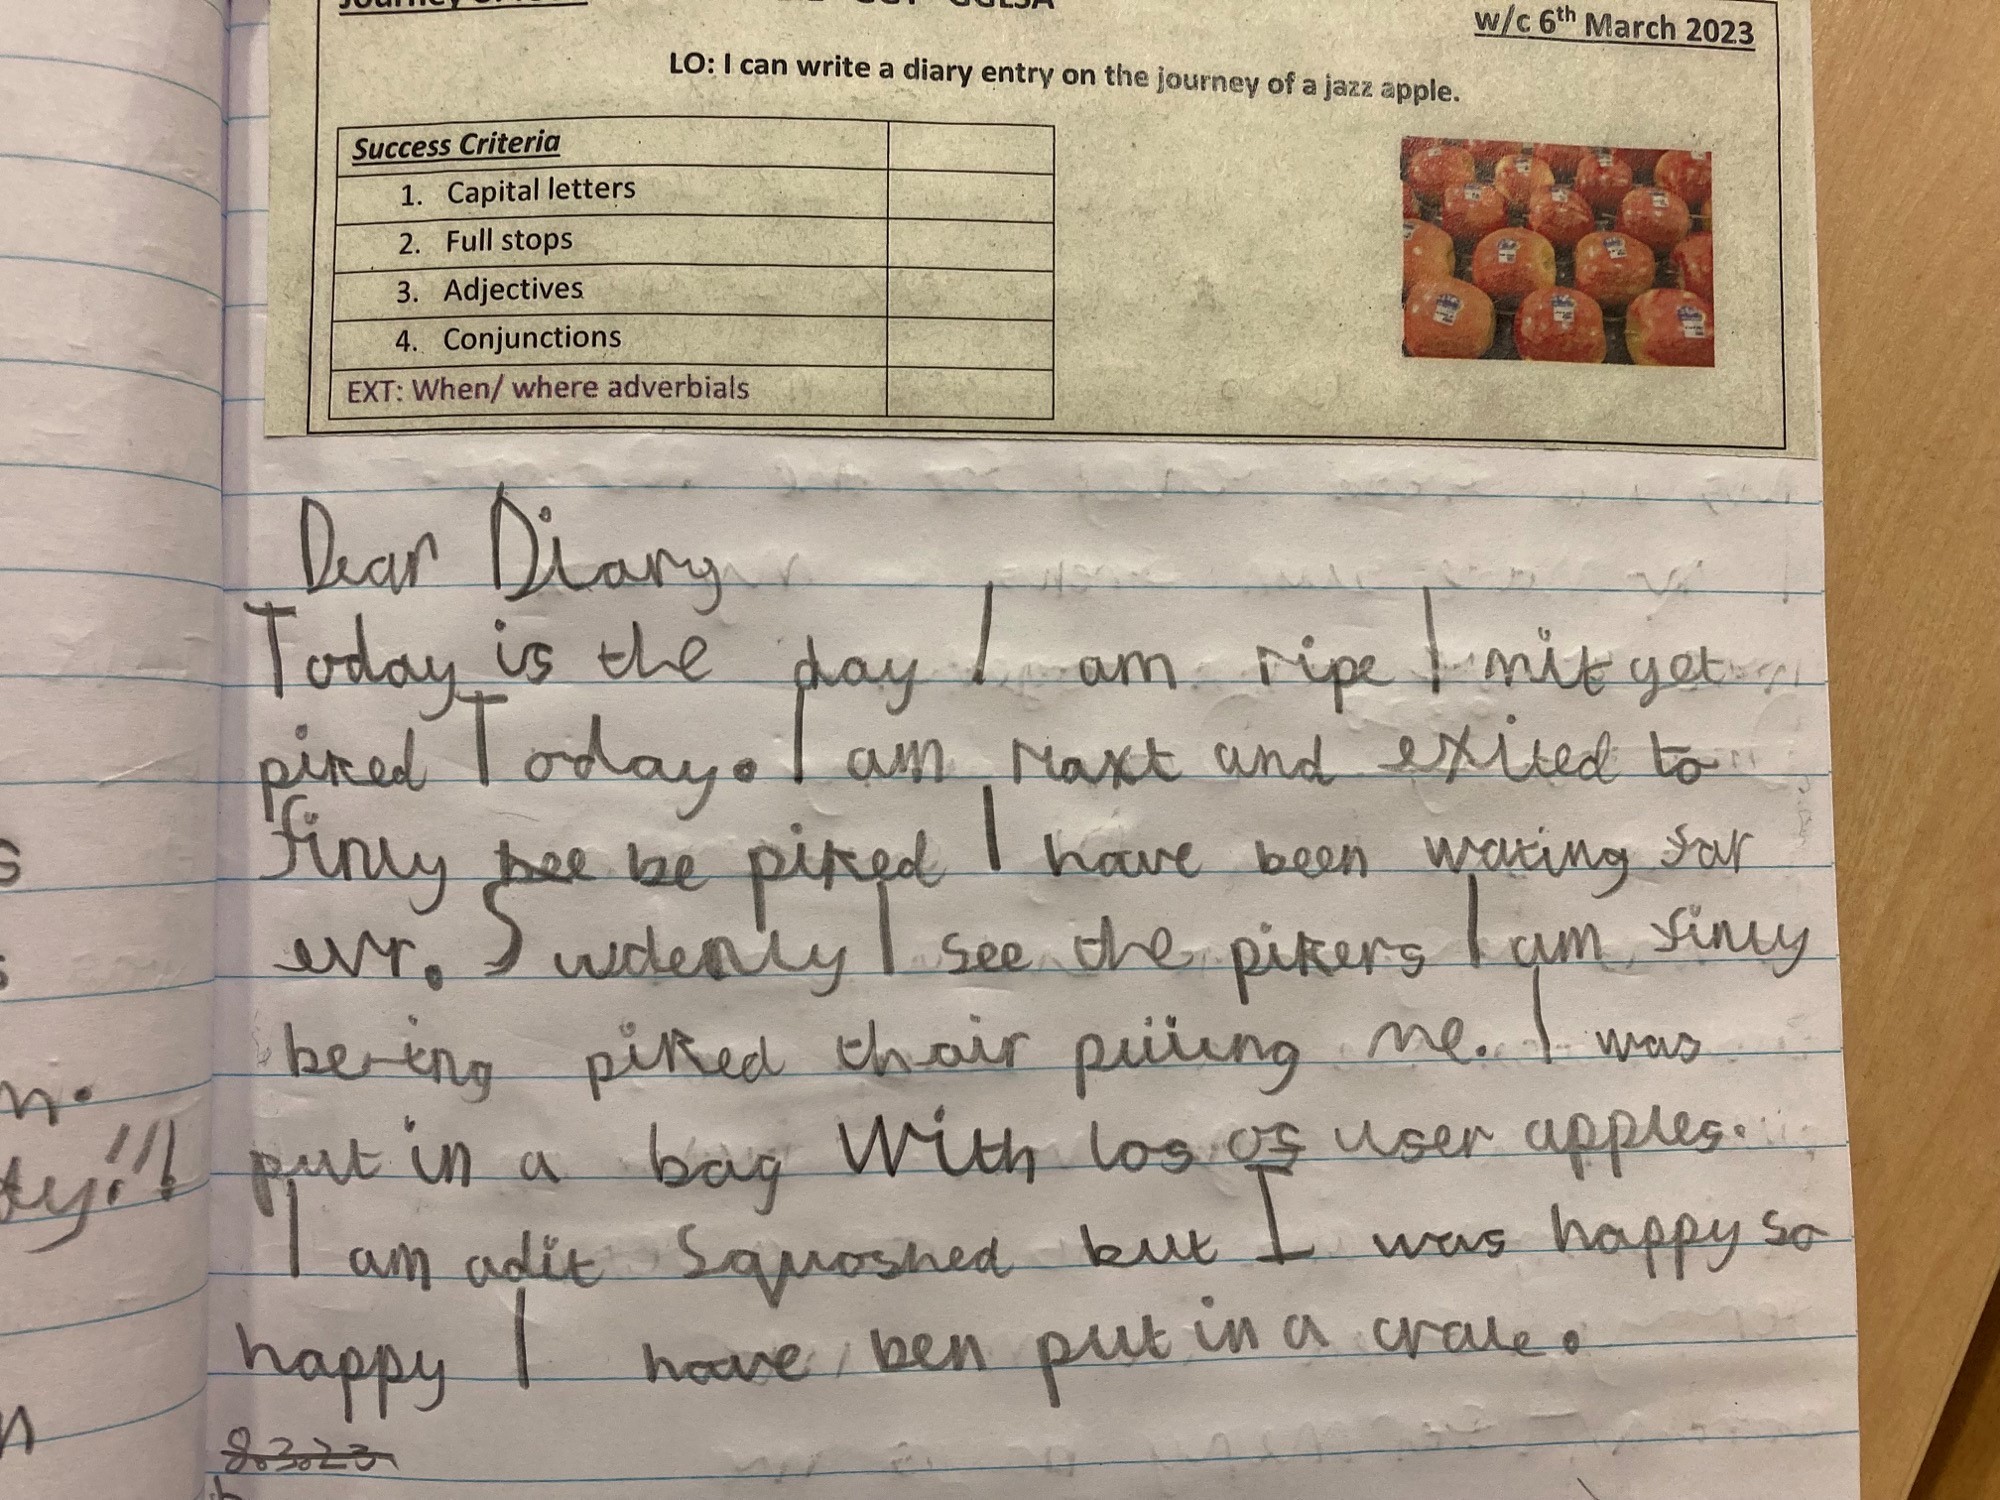 w/c 6th March 2023
LO: I can write a diary entry on the journey of a jazz apple.
Success Criteria
1. Capital letters
2. Full stops
3. Adjectives
4. Conjunctions
EXT: When/ where adverbials
Dear Diary
Today is the day I am ripe I mit get
piked Today. I am raxt and exited to
finly bee be piked I have been wating for
evr. Suddenly I see the pikers I am finly
being piked thair pulling me. I was
put in a bag With los of user apples.
I am adit Squoshed but I was happy so
happy I have ben put in a crate.
8.3.23